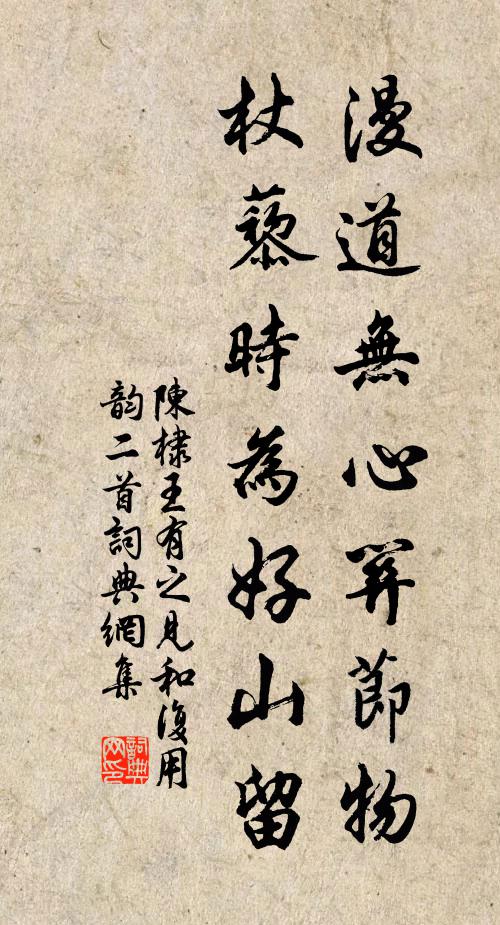 漫道無心關節物
杖藜時為好山留
陳棣王有之見和復用
韵二首詞典網集
詞典
网印